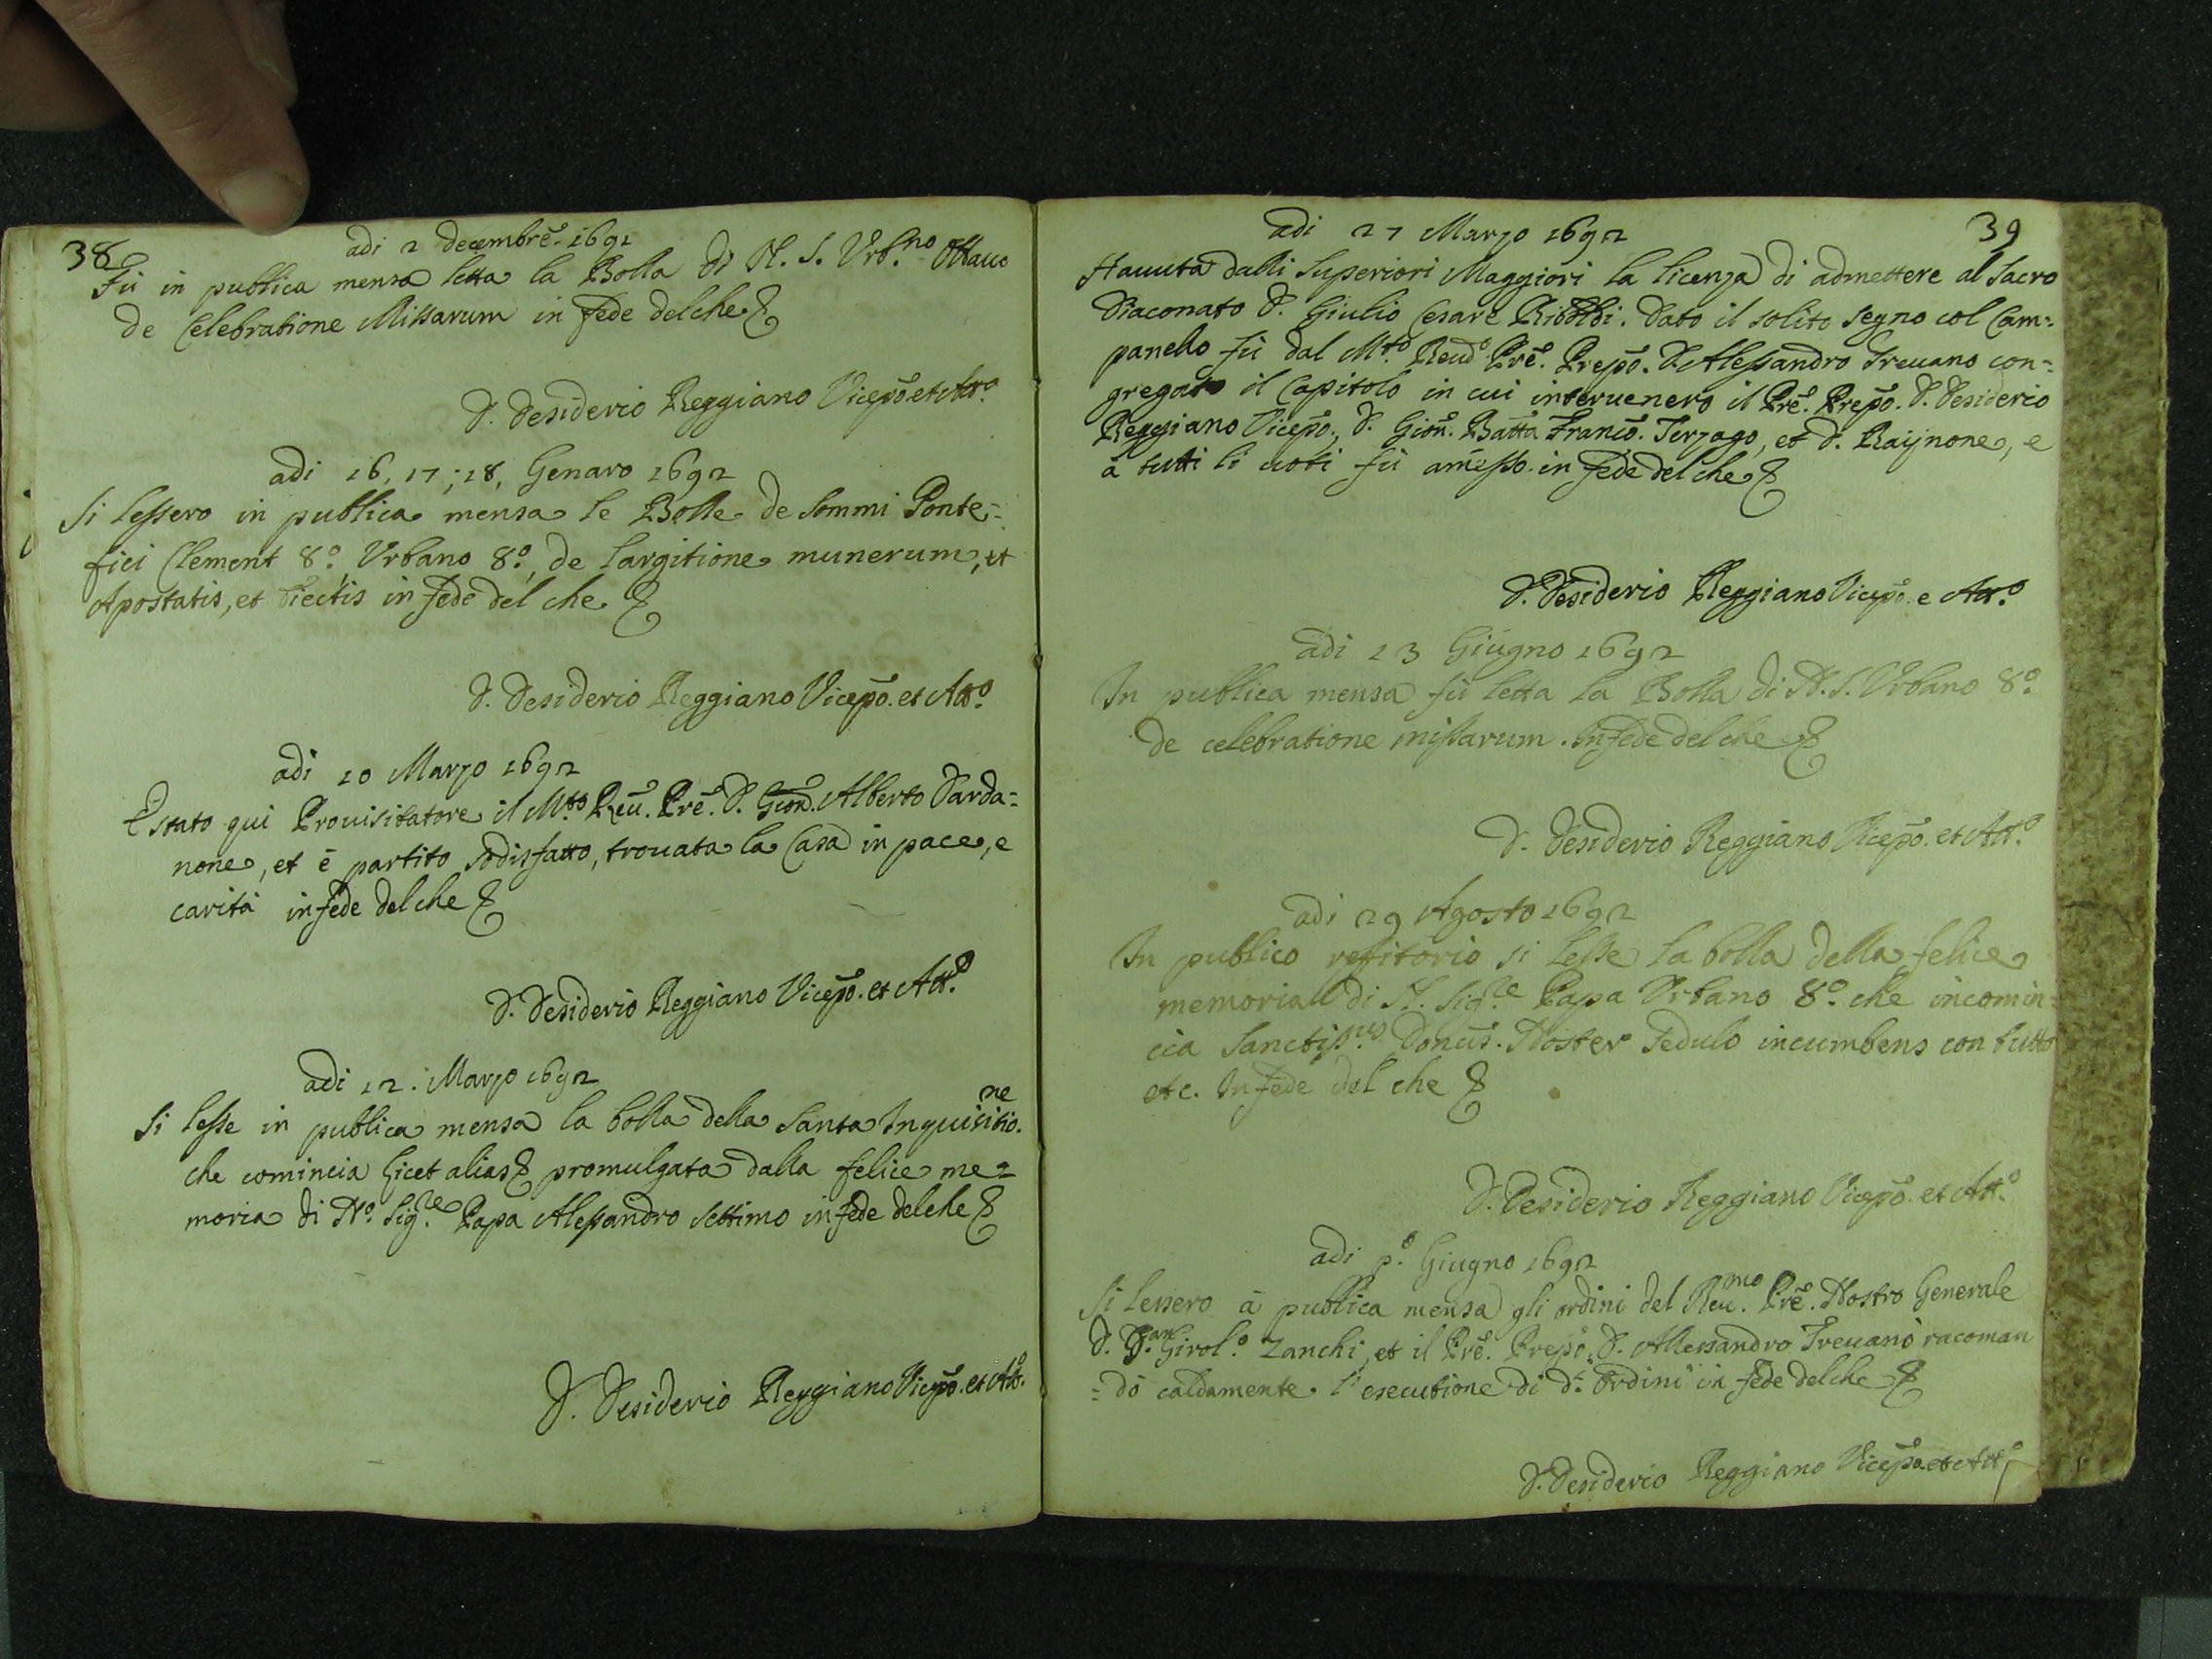 38
adi 2 decembrē 1691
Fù in publica mensa letta la Bolla di N. S. Urb.no Ottauo
de Celebratione Missarum in fede del che &
D. Desiderio Reggiano Vicepō. et Att.o
adi 16, 17, 18, Genaro 1692
Si lessero in publica mensa le Bolle de Sommi Ponte=
fici Clement 8.o Urbano 8.o, de largitione munerum, et
Apostatis, et Eiectis in fede del che &
D. Desiderio Reggiano Vicepō. et Att.o
adi 10 Marzo 1692
È stato qui Prouisitatore il M.to Reu. Prē. D. Gioū. Alberto Sarda=
none, et è partito sodisfatto, trouata la Casa in pace, e
carità in fede del che &
D. Desiderio Reggiano Vicepō. et Att.o
adi 12. Marzo 1692
Si lesse in publica mensa la bolla della Santa Inquisitio.ne
che comincia Licet alias & promulgata dalla felice me=
moria di N.o Sig.re Papa Alessandro settimo in fede del che &
D. Desiderio Reggiano Vicepō. et Att.o
39
adi 27 Marzo 1692
Hauuta dalli Superiori Maggiori la licenza di admettere al Sacro
Diaconato D. Giulio Cesare Riboldi. Dato il solito segno col Cam=
panello fù dal M.to Reud.o Prē. Prepō. D. Alessandro Treuano con=
gregato il Capitolo in cui interuenero il Prē. Prepō. D. Desiderio
Reggiano Vicepō., D. Gioū. Batta Francō. Terzago, et D. Raijnone, e
à tutti li uoti fù am̄esso in fede del che &
D. Desiderio Reggiano Vicepō. e Att.o
adi 13 Giugno 1692
In publica mensa fù letta la Bolla di N. S. Urbano 8.o
de celebratione missarum. In fede del che &
D. Desiderio Reggiano Vicepō. et Att.o
adi 29 Agosto 1692
In publico refitorio si lesse la bolla della felice
memoria di N. Sig.re Papa Urbano 8.o che incomin=
cia Sanctiss.us Donūs. Noster Sedulo incumbens con tutto
etc. In fede del che &
D. Desiderio Reggiano Vicepō. et Att.o
adi p.o Giugno 1692
Si lessero à publica mensa gli ordini del Reu.mo Prē. Nostro Generale
D. Girol.o Zanchi, et il Prē. Prepō. D. Alessandro Treuano racoman
=dò caldamente l'esecutione di d.i ordini in fede del che &
D. Desiderio Reggiano Vicepō. et Att.o